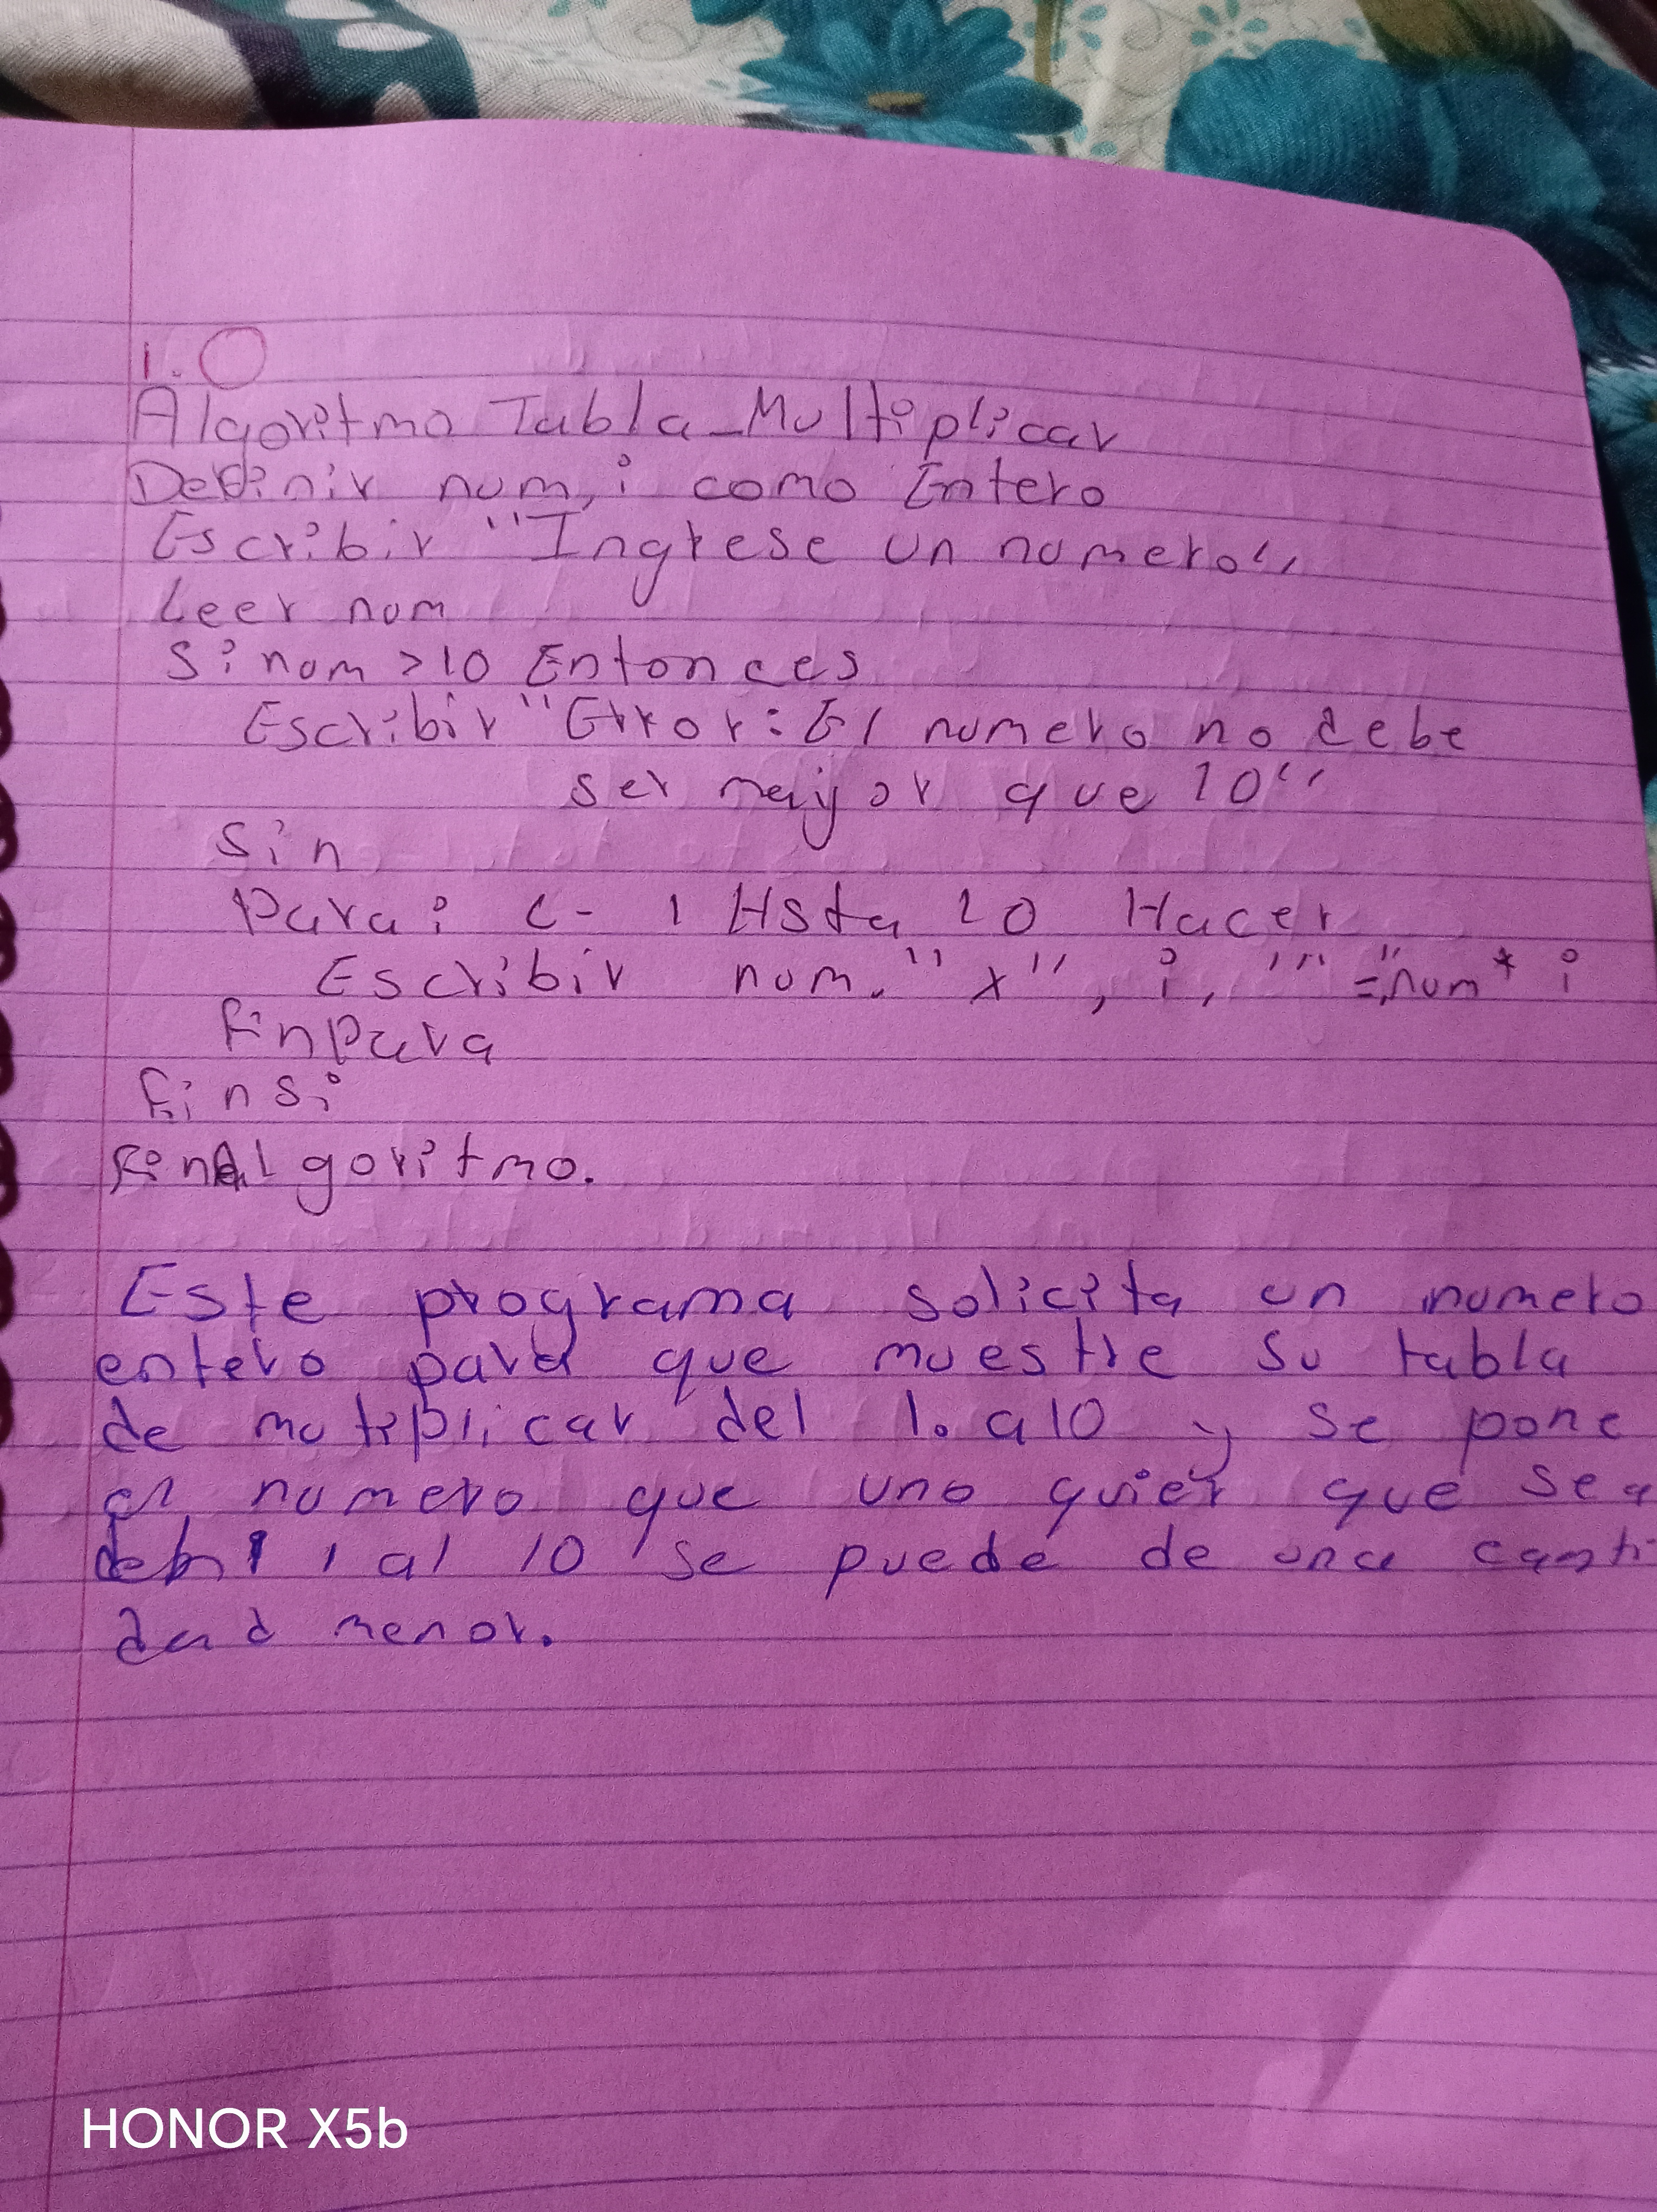 1.
Algoritmo Tabla_Multiplicar
Definir num, i como Entero
Escribir "Ingrese un numero"
Leer num
Si num > 10 Entonces
Escribir "Error: El numero no debe
ser mayor que 10"
Sin
Para i <- 1 Hsta 10 Hacer
Escribir num. "x", i, "" =",num * i
FinPara
Finsi
FinAlgoritmo.
Este programa solicita un numero
entero para que muestre su tabla
de mutiplicar del 1. a 10 y se pone
el numero que uno quier que sea
1 al 10 se puede de una canti
dad menor.
HONOR X5b